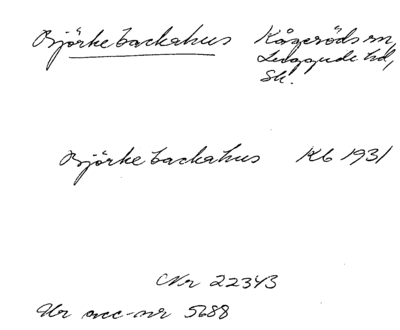 Björkebackahus Kågeröds sn,
Luggude hd,
Sk.
Björkebackahus Kb 1931
Nr 22343
Ur acc-nr 5688